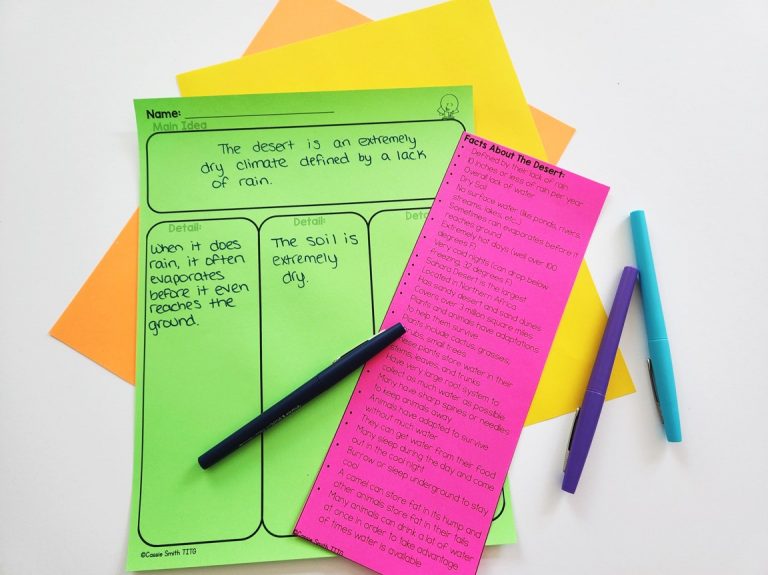 Name:
Main Idea
The desert is an extremely
dry climate defined by a lack
of rain.
Detail:
When it does
rain, it often
evaporates
before it even
reaches the
ground.
Detail:
The soil is
extremely
dry.
©Cassie Smith TITG
Facts About The Desert:
Defined by their lack of rain
10 inches or less of rain per year
Overall lack of water
Dry Soil
No surface water like ponds, rivers,
streams, lakes, etc...
Sometimes rain evaporates before it
reaches ground
Extremely hot days (well over 100
degrees F)
Very cold nights (can drop below
freezing, 32 degrees F)
Sahara Desert is the largest
Located in Northern Africa
Has sandy desert and sand dunes
Covers over 1 million square miles
Plants and animals have adaptations
to help them survive
Plants include cactus, grasses,
shrubs, small trees
plants store water in their
stems, leaves, and trunks
Have very large root system to
collect as much water as possible
Many have sharp spines or needles
to keep animals away
Animals have adapted to survive
without much water
They can get water from their food
Many sleep during the day and come
out in the cool night
Burrow or sleep underground to stay
cool
A camel can store fat in its hump and
other animals store fat in their tails
Many animals can drink a lot of water
at once in order to take advantage
of times water is available
©Cassie Smith TITG